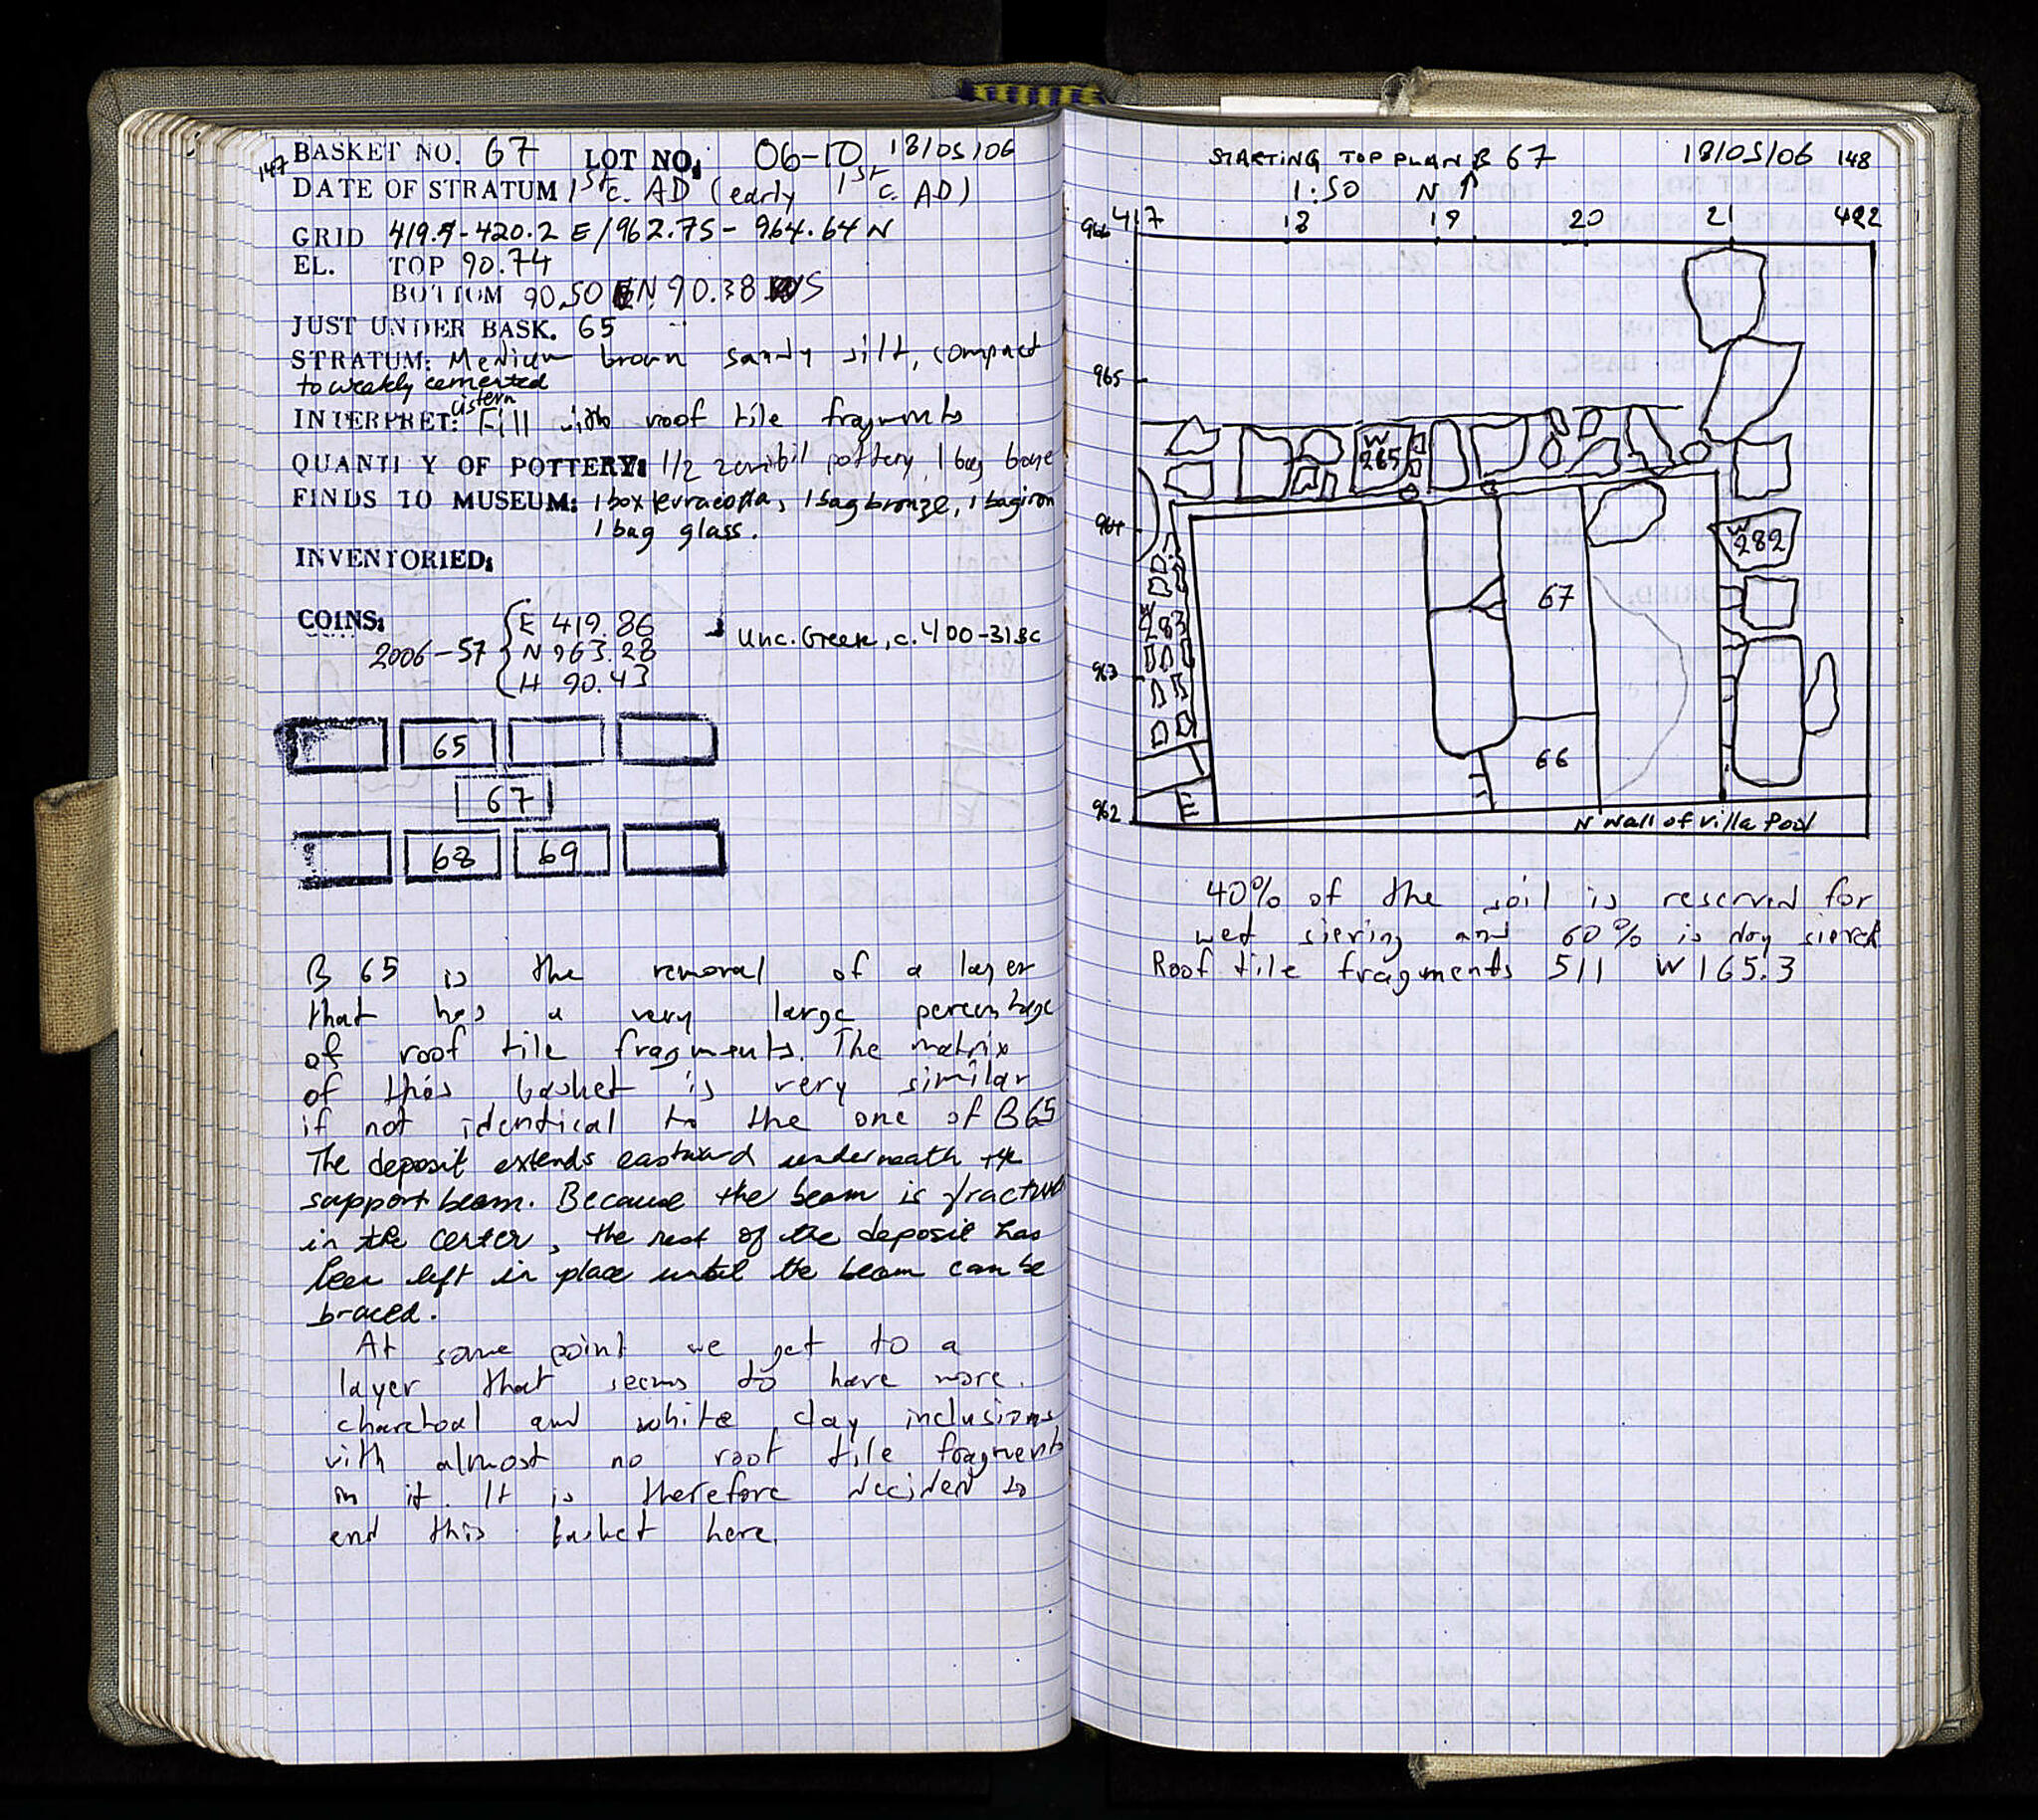 147 BASKET NO. 67 LOT NO. 06-10 18/05/06
DATE OF STRATUM 1st c. AD (early 1st c. AD)
GRID 419.5-420.2 E/962.75-964.64 N
EL. TOP 90.74
BOTTOM 90.50 N 90.38 S
JUST UNDER BASK. 65
STRATUM: Medium brown sandy silt, compact
to weakly cemented
cistern
INTERPRET: Fill with roof tile fragments
QUANTITY OF POTTERY: 1/2 zembil pottery, 1 bag bone
FINDS TO MUSEUM: 1 box terracotta, 1 bag bronze, 1 bag iron
1 bag glass.
INVENTORIED:
COINS:
2006-57 { E 419.86
N 963.28
H 90.43
Unc. Greek, c. 400-31BC
65
67
68 69
B 65 is the removal of a layer
that has a very large percentage
of roof tile fragments. The matrix
of this basket is very similar
if not identical to the one of B65
The deposit extends eastward underneath the
support beam. Because the beam is fractured
in the center, the rest of the deposit has
been left in place until the beam can be
braced.
At some point we get to a
layer that seems to have more
charcoal and white clay inclusions
with almost no roof tile fragments
in it. It is therefore decided to
end this basket here.
STARTING TOP PLAN B 67 18/05/06 148
1:50 N↑
417 18 19 20 21 422
966
965
964
963
962
W 265
W 282
W 283
67
66
E
N Wall of Villa Pool
40% of the soil is reserved for
wet sieving and 60% is dry sieved
Roof tile fragments 511 W 165.3